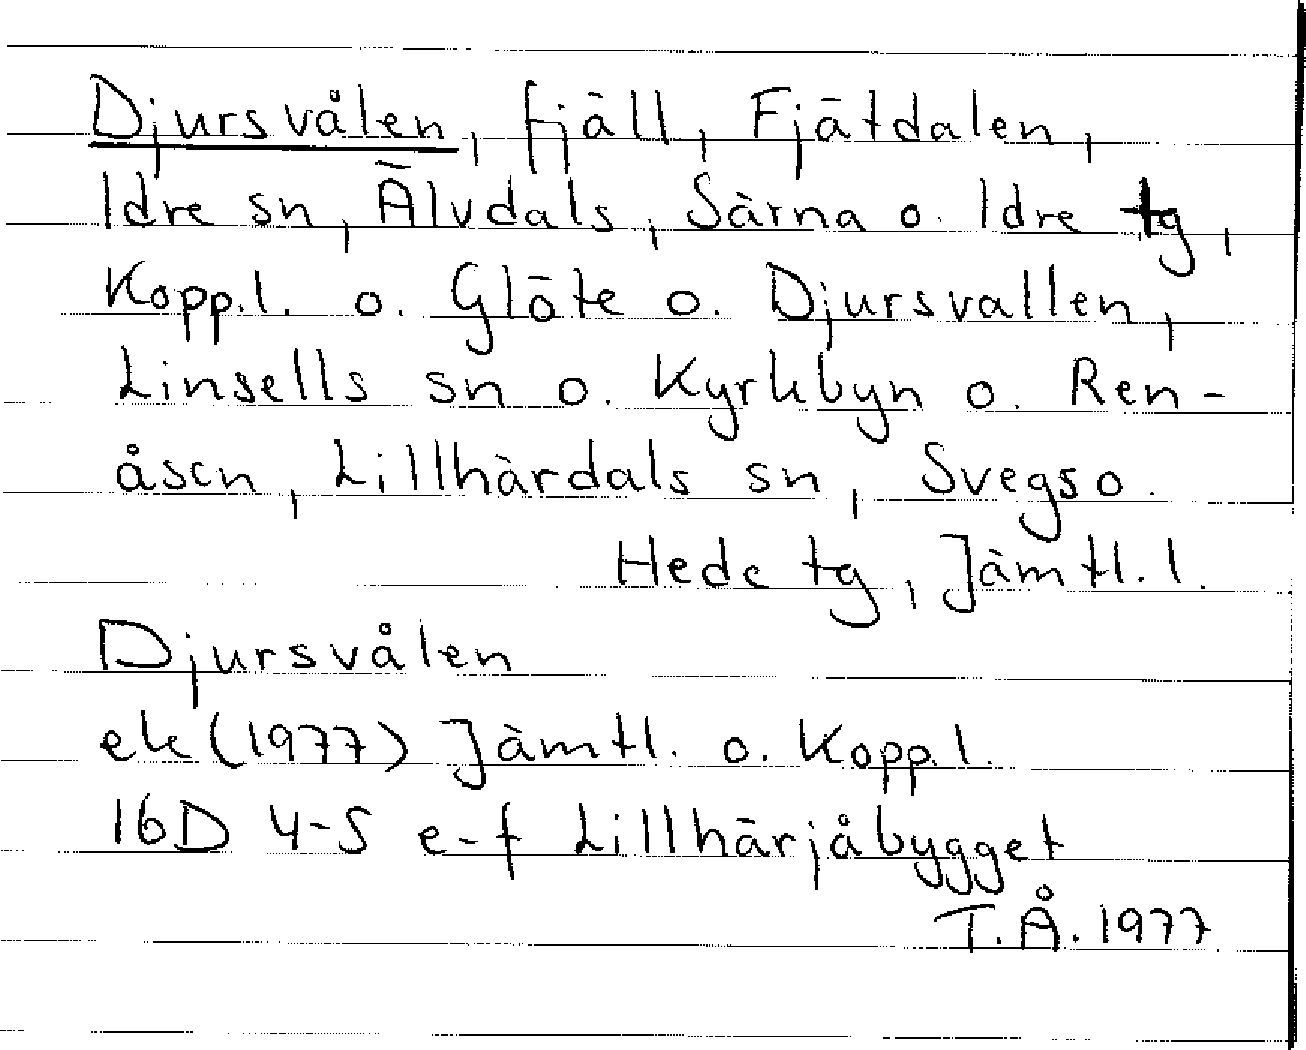 Djursvålen, fjäll, Fjätdalen,
Idre sn, Älvdals, Särna o. Idre tg,
Kopp.l. o. Glöte o. Djursvallen,
Linsells sn o. Kyrkbyn o. Ren-
åsen, Lillhärdals sn, Svegs o.
Hede tg, Jämtl.l.
Djursvålen
ek (1977) Jämtl. o. Kopp.l.
16D 4-5 e-f Lillhärjåbygget
T.Å. 1977